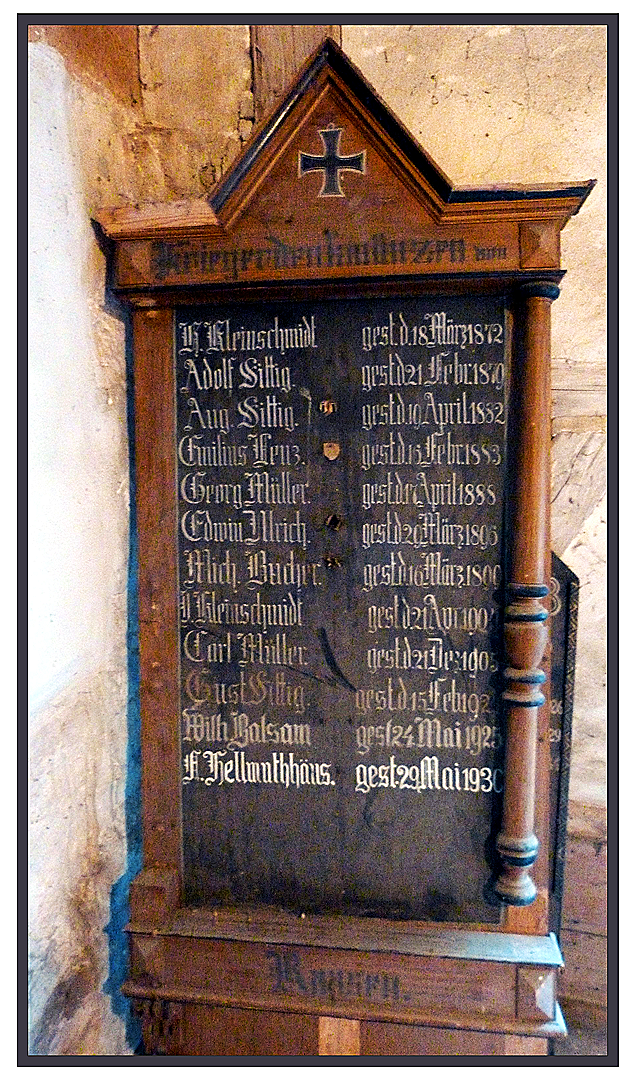 von
H. Kleinschmidt gest.d.18.März1872
Adolf Sittig. gest.d.21.Febr.1879
Aug. Sittig. gest.d.19.April.1882
Lenz. gest.d.13.Febr.1883
Georg Müller. gest.d.17.April.1888
Edwin Ulrich. gest.d.29.März.1896
Mich. Bucher. gest.d.16.März.1899
J. Kleinschmidt gest.d.21.Apr.
Carl Müller. gest.d.21.Dez.
Gust. Sittig. gest.d.15.Feb.
Wilh. Balsam gest.24.Mai.1925
F. Hellmuthhäus. gest.29.Mai.1930